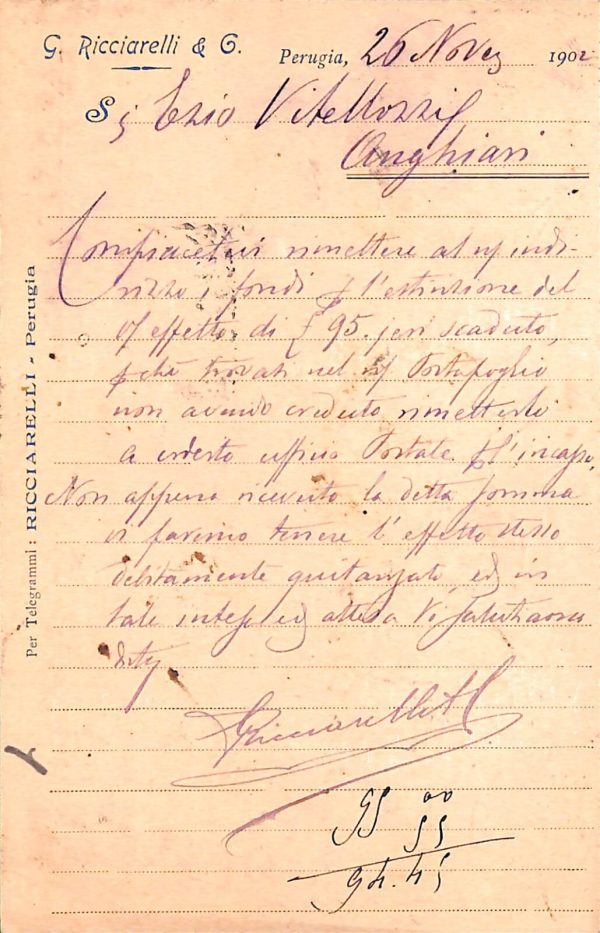 G. Ricciarelli & C.
Perugia, 26 Nove 1902
Sg Ezio Vitellozzi
Anghiari
Compiacetevi rimettere al n/ indi-
rizzo, i fondi p l'estinzione del
v/ effetto di £ 95. jeri scaduto,
pchè trovasi nel n/ Portafoglio
non avendo creduto rimetterlo
a codesto ufficio Postale pl'incasso,
Non appena ricevuto la detta somma
vi faremo tenere l'effetto stesso
debitamente quitanzato, ed in
tale intesa ed attesa Vi salutiamo
Ricciarelli & C
95 00
55
94.45
Per Telegrammi: RICCIARELLI - Perugia